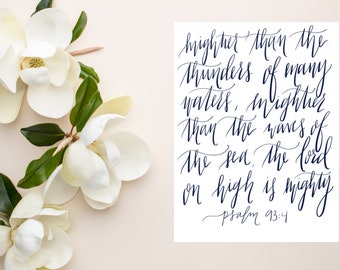 mightier than the
thunders of many
waters, mightier
than the waves of
the sea the lord
on high is mighty
psalm 93:4